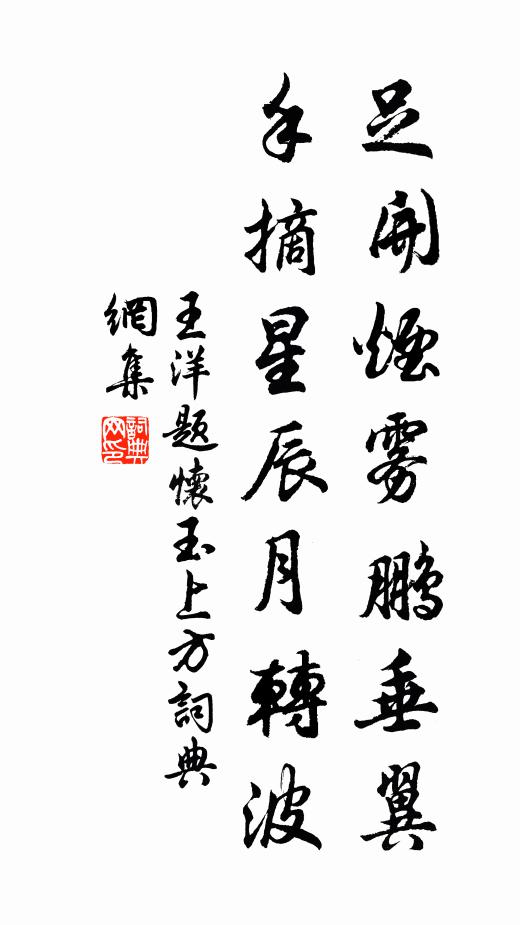 足開煙雾鹏垂翼
手摘星辰月轉波
王洋题懷玉上方詞典
網集
詞典
网印